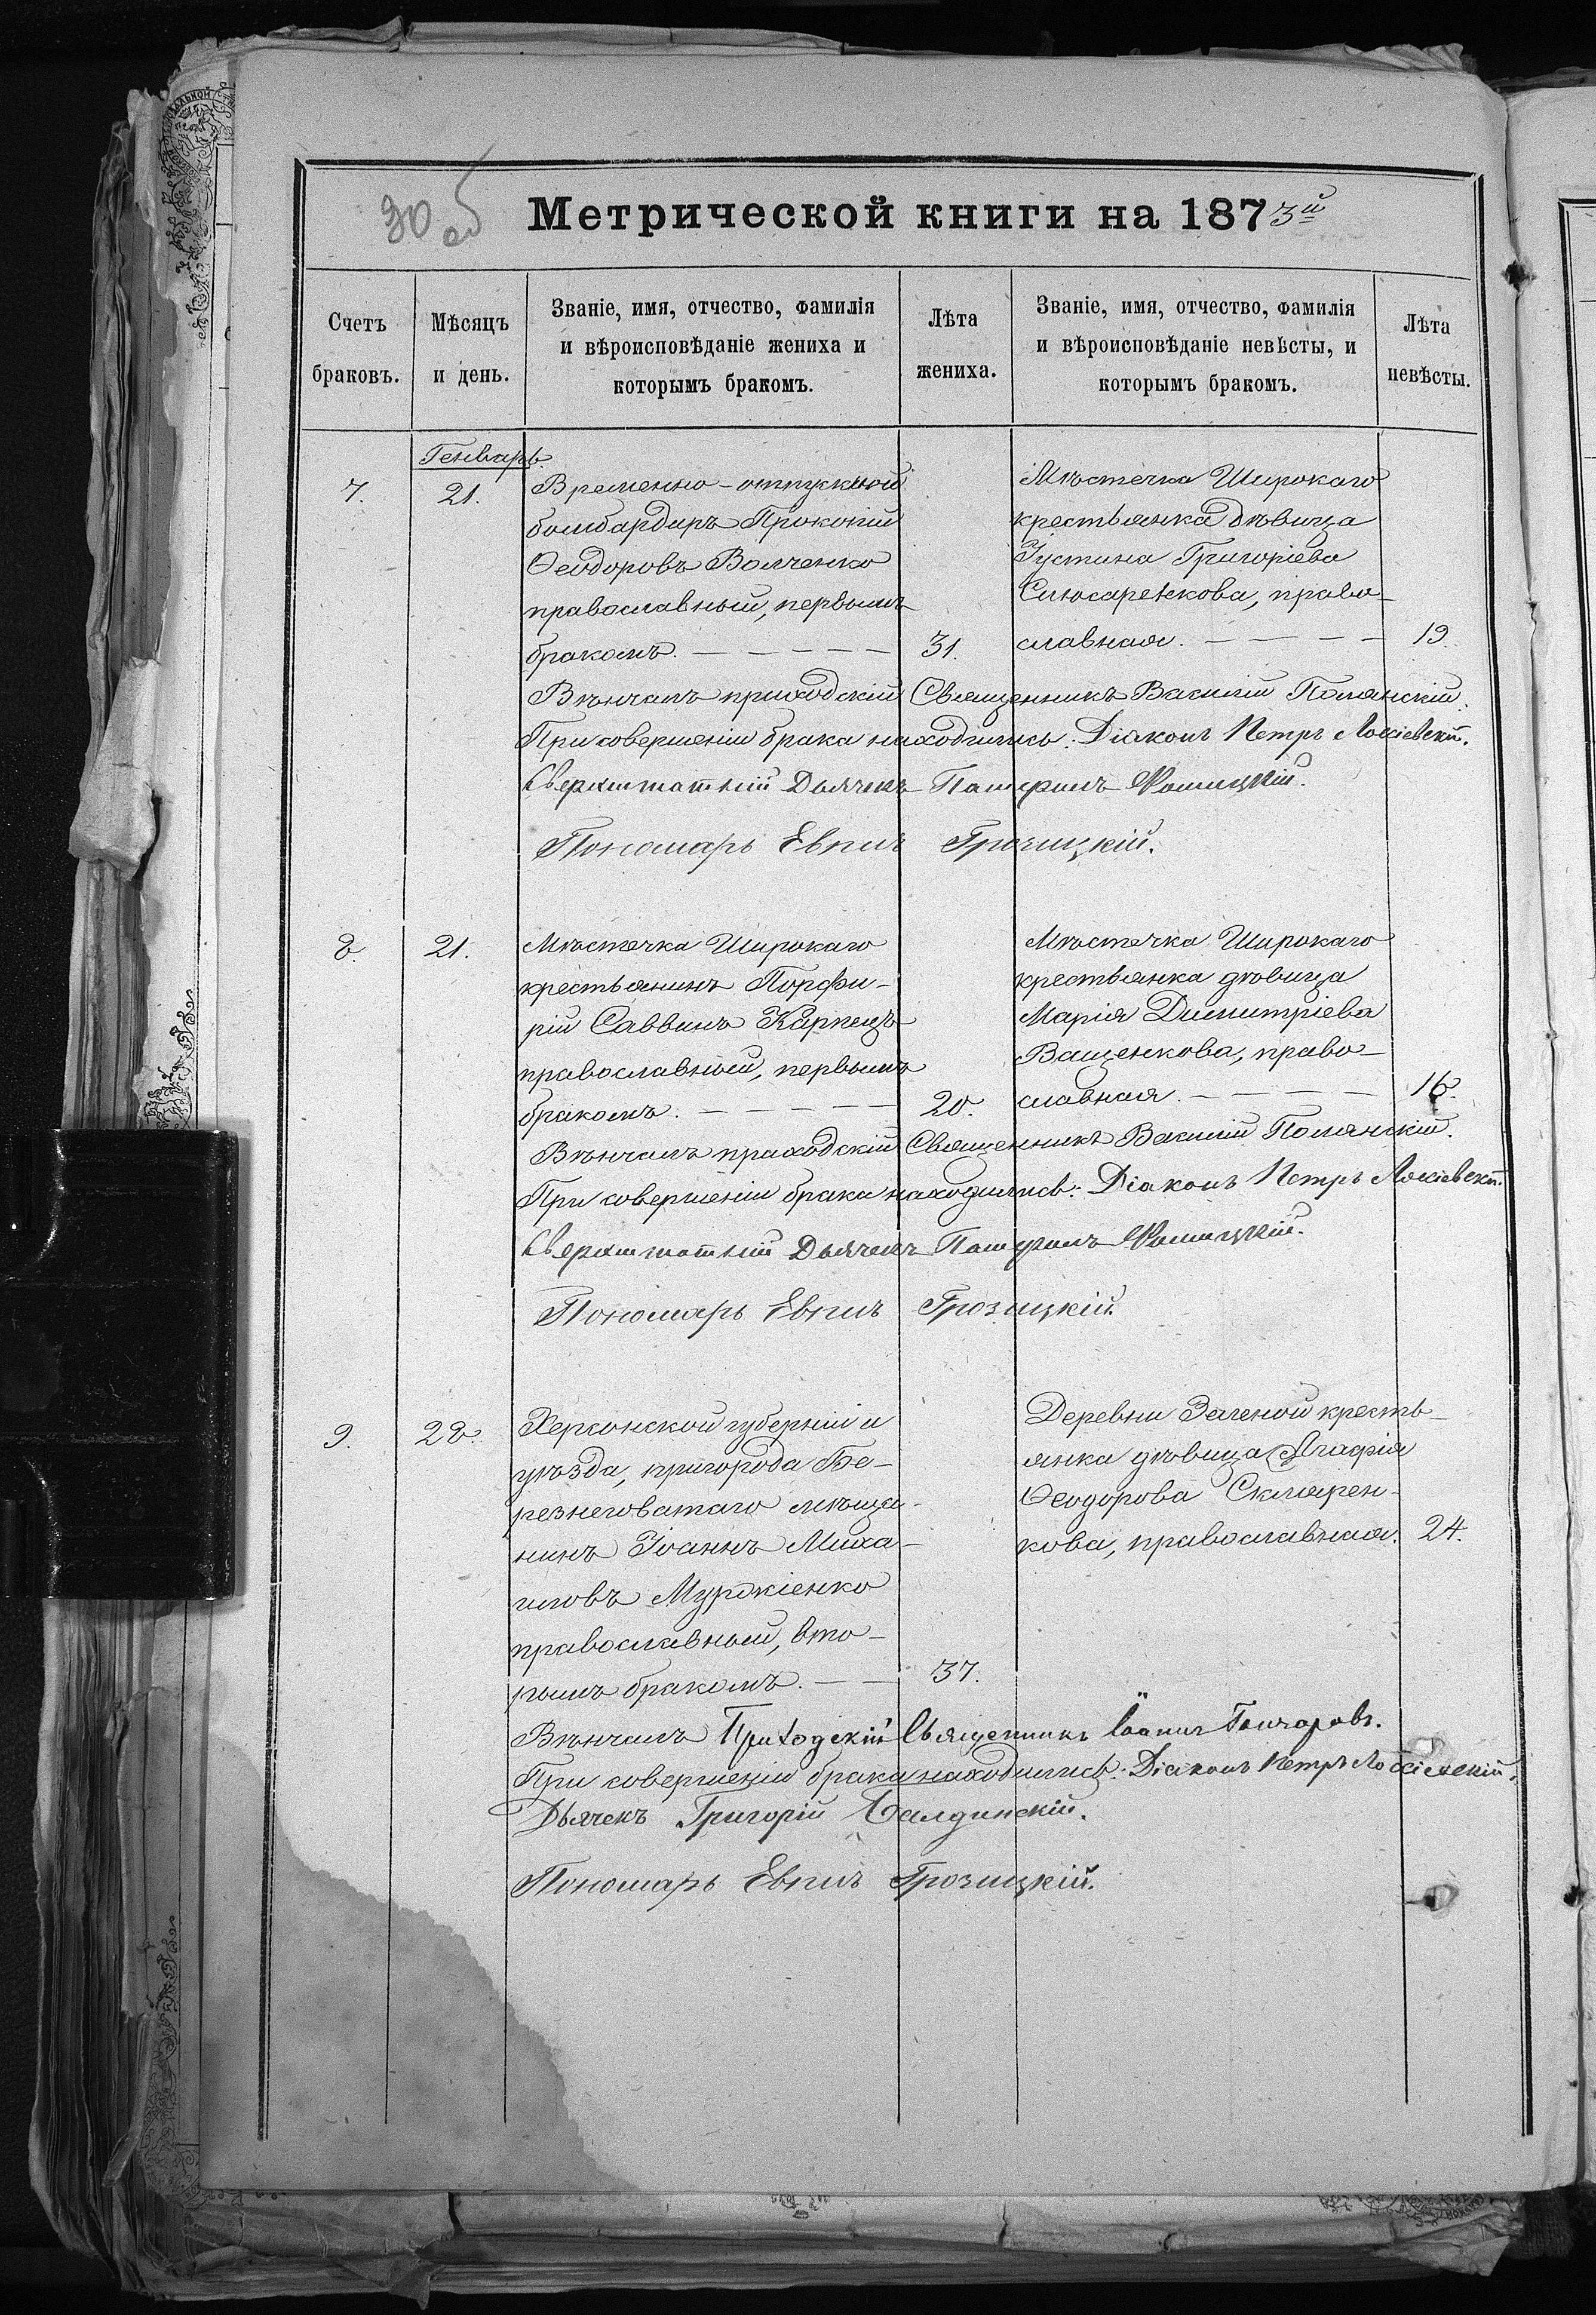 30 об
Метрической книги на 1873й
Счетъ браковъ.
Мѣсяцъ и день.
Званіе, имя, отчество, фамилія и вѣроисповѣданіе жениха и которымъ бракомъ.
Лѣта жениха.
Званіе, имя, отчество, фамилія и вѣроисповѣданіе невѣсты, и которымъ бракомъ.
Лѣта невѣсты.
Генварь.
7. 21.
Временно-отпускной
бомбардиръ Прокопій
Ѳеодоровъ Волченко
православный, первымъ
бракомъ. 31.
Мѣстечка Широкаго
крестьянка дѣвица
Іустина Григоріева
Слюсаренкова, право-
славная. 19.
Вѣнчалъ приходскій Священникъ Василій Полянскій.
При совершеніи брака находились: Діаконъ Петръ
Сверхштатный Дьячекъ
Пономарь Грозицкій.
8. 21.
Мѣстечка Широкаго
крестьянинъ Порфи-
рій Саввинъ Карпецъ
православный, первымъ
бракомъ. 20.
Мѣстечка Широкаго
крестьянка дѣвица
Марія Димитріева
Ващенкова, право-
славная. 16.
Вѣнчалъ приходскій Священникъ Василій Полянскій.
При совершеніи брака находились: Діаконъ Петръ
Сверхштатный Дьячекъ
Пономарь Грозицкій.
9. 28.
Херсонской губерніи и
уѣзда, пригорода Бе-
резнеговатаго мѣща-
нинъ Іоаннъ Миха-
иловъ Муржіенко
православный, вто-
рымъ бракомъ. 37.
Деревни Зеленой кресть-
янка дѣвица Агафія
Ѳеодорова Склярен-
кова, православная. 24.
Вѣнчалъ Приходскій Священникъ Іоаннъ Гончаровъ.
При совершеніи брака находились: Діаконъ Петръ
Дьячекъ Григорій Балдинскій.
Пономарь Грозицкій.